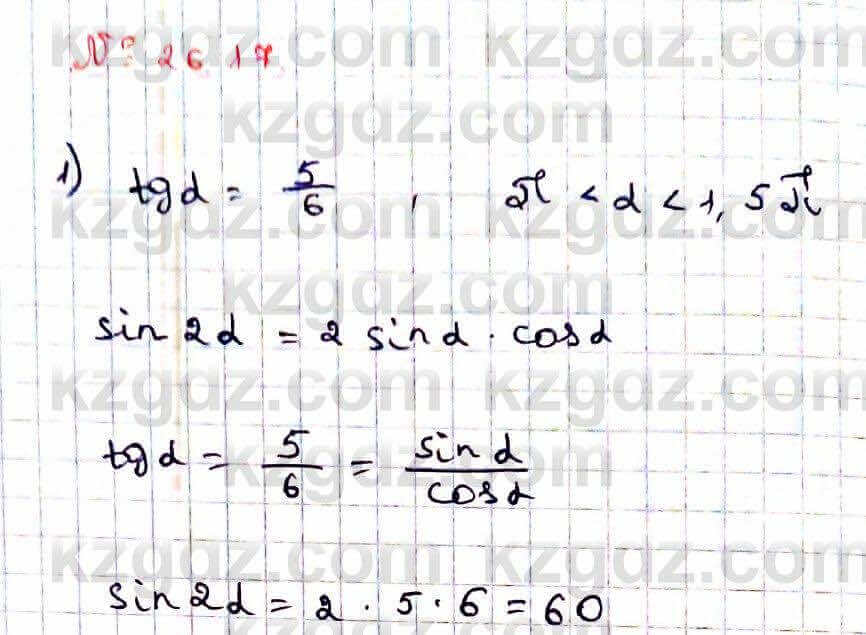 № 26.17.
1) tg α = 5/6 , π < α < 1,5π
sin 2α = 2 sin α · cos α
tg α = 5/6 = sin α / cos α
sin 2α = 2 · 5 · 6 = 60
kzgdz.com
kzgdz.com
kzgdz.com
kzgdz.com
kzgdz.com
kzgdz.com
kzgdz.com
kzgdz.com
kzgdz.com
kzgdz.com
kzgdz.com